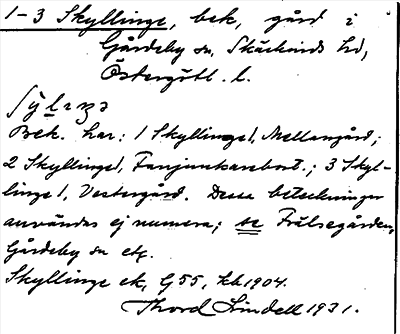 1-3 Skyllinge, bek, gård i
Gårdeby sn, Skärkinds hd,
Östergötl. l.
Bek. har: 1 Skyllinge 1, Mellangård;
2 Skyllinge 1, Fanjunkarebost.; 3 Skyl-
linge 1, Vestergård. Dessa beteckningar
användas ej numera; se Frälsegården,
Gårdeby sn etc.
Skyllinge ek, G55, kb 1904.
Thord Lindell 1931.